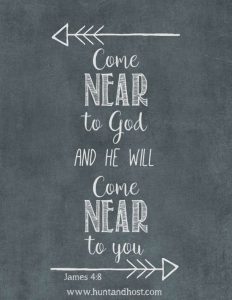 Come
NEAR
to God
AND HE WILL
Come
NEAR
to you
James 4:8
www.huntandhost.com